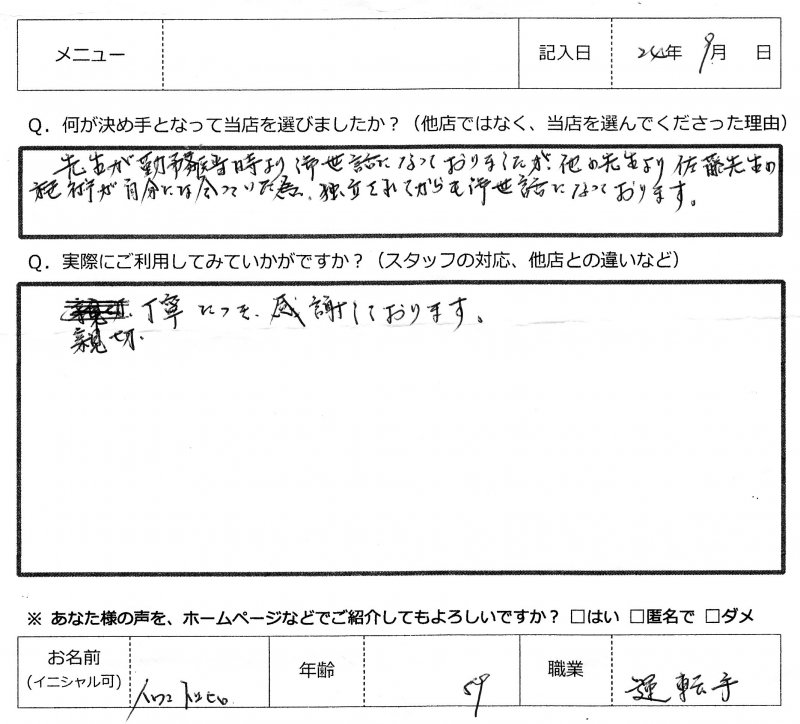 メニュー 記入日 24年 9月 日
Q. 何が決め手となって当店を選びましたか？（他店ではなく、当店を選んでくださった理由）
先生が勤務当時より御世話になっておりましたが、他の先生より佐藤先生の
施術が自分には合っていた為、独立されてからも御世話になっております。
Q. 実際にご利用してみていかがですか？（スタッフの対応、他店との違いなど）
丁寧につき、感謝しております。
親切、
※ あなた様の声を、ホームページなどでご紹介してもよろしいですか？ □はい □匿名で □ダメ
お名前 年齢 59 職業 運転手
(イニシャル可)